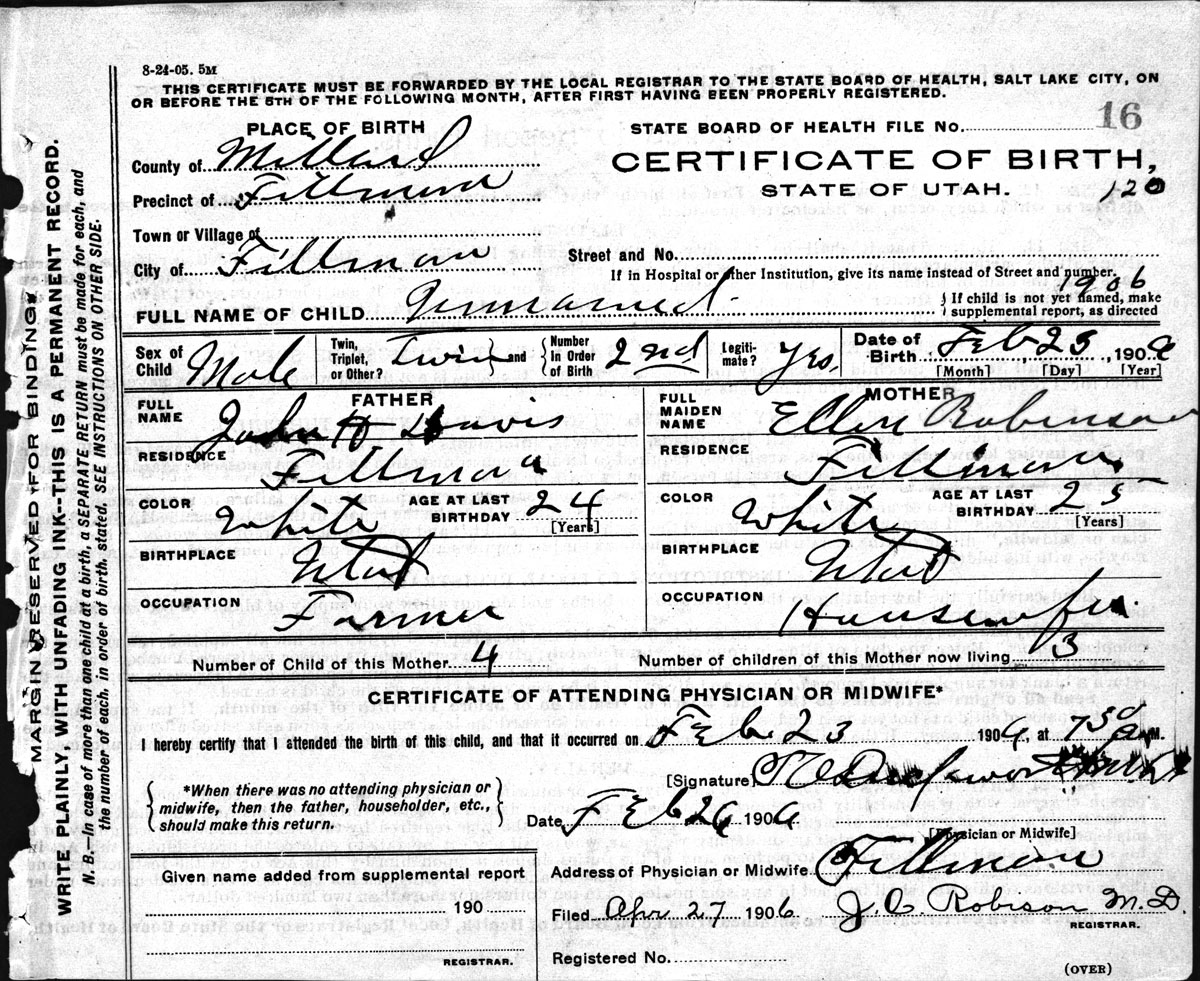 8-24-05. 5M
THIS CERTIFICATE MUST BE FORWARDED BY THE LOCAL REGISTRAR TO THE STATE BOARD OF HEALTH, SALT LAKE CITY, ON
OR BEFORE THE 5TH OF THE FOLLOWING MONTH, AFTER FIRST HAVING BEEN PROPERLY REGISTERED.
MARGIN RESERVED FOR BINDING.
WRITE PLAINLY, WITH UNFADING INK--THIS IS A PERMANENT RECORD.
N. B.—In case of more than one child at a birth, a SEPARATE RETURN must be made for each, and
the number of each, in order of birth, stated. SEE INSTRUCTIONS ON OTHER SIDE.
PLACE OF BIRTH
STATE BOARD OF HEALTH FILE No. 16
County of Millard
CERTIFICATE OF BIRTH,
Precinct of Fillmore
STATE OF UTAH. 120
Town or Village of
City of Fillmore
Street and No.
If in Hospital or other Institution, give its name instead of Street and number.
1906
FULL NAME OF CHILD Unnamed. { If child is not yet named, make
supplemental report, as directed
Sex of Child Male
Twin, Triplet, or Other? Twin } and { Number In Order of Birth 2nd
Legiti-mate? Yes.
Date of Birth Feb 23, 190
[Month] [Day] [Year]
FATHER
MOTHER
FULL NAME John H Davis
FULL MAIDEN NAME Ellen Robinson
RESIDENCE Fillmore
RESIDENCE Fillmore
COLOR White AGE AT LAST BIRTHDAY 24 [Years]
COLOR White AGE AT LAST BIRTHDAY 25 [Years]
BIRTHPLACE Utah
BIRTHPLACE Utah
OCCUPATION Farmer
OCCUPATION Housewife.
Number of Child of this Mother 4
Number of children of this Mother now living 3
CERTIFICATE OF ATTENDING PHYSICIAN OR MIDWIFE*
I hereby certify that I attended the birth of this child, and that it occurred on Feb 23 190, at M.
[Signature]
*When there was no attending physician or
midwife, then the father, householder, etc.,
should make this return.
Date Feb 190
[Physician or Midwife]
Given name added from supplemental report
Address of Physician or Midwife Fillmore
190
Filed 27 1906 J. C. Robison M. D.
REGISTRAR.
REGISTRAR.
Registered No.
(OVER)